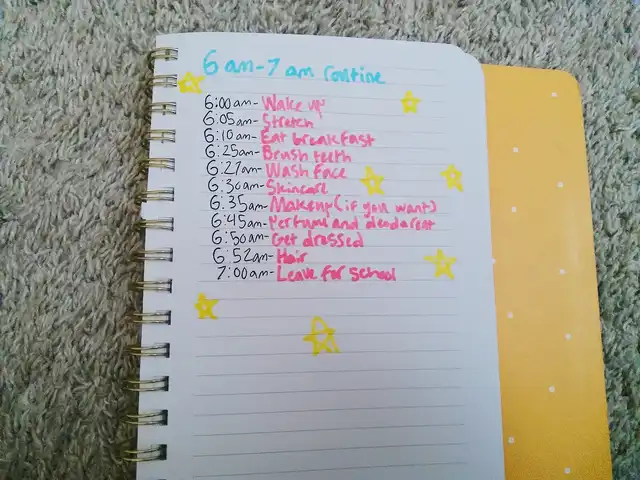 6 am-7 am routine
6:00am-Wake up
6:05am-Stretch
6:10am-Eat breakfast
6:25am-Brush teeth
6:27am-Wash face
6:30am-Skincare
6:35am-Makeup(if you want)
6:45am-Perfume and deodarent
6:50am-Get dressed
6:52am-Hair
7:00am-Leave for school